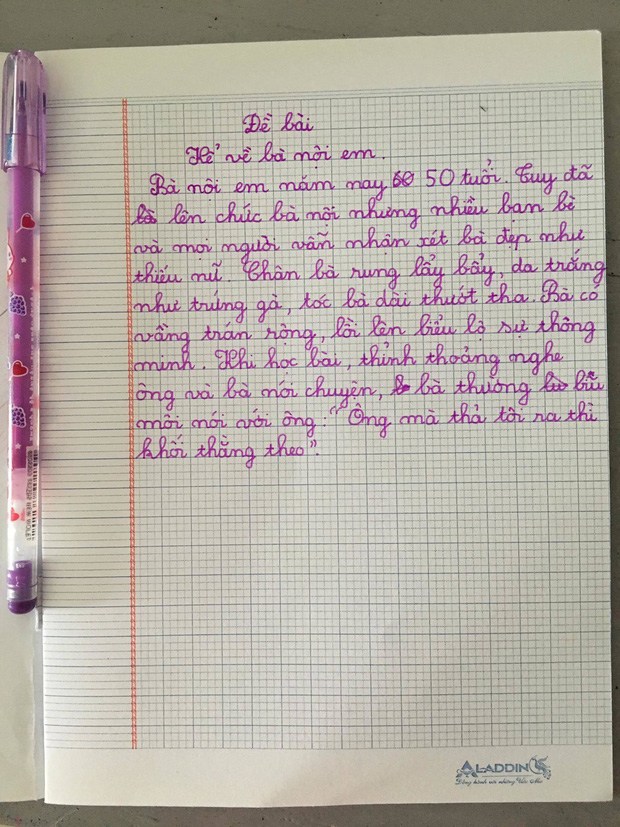 Đề bài
Kể về bà nội em.
Bà nội em năm nay 50 tuổi. Tuy đã
lên chức bà nội nhưng nhiều bạn bè
và mọi người vẫn nhận xét bà đẹp như
thiếu nữ. Chân bà rung lẩy bẩy, da trắng
như trứng gà, tóc bà dài thướt tha. Bà có
vầng trán rộng, lồi lên biểu lộ sự thông
minh. Khi học bài, thỉnh thoảng nghe
ông và bà nói chuyện, bà thường bĩu
môi nói với ông: "Ông mà thả tôi ra thì
khối thằng theo".
ALADDIN